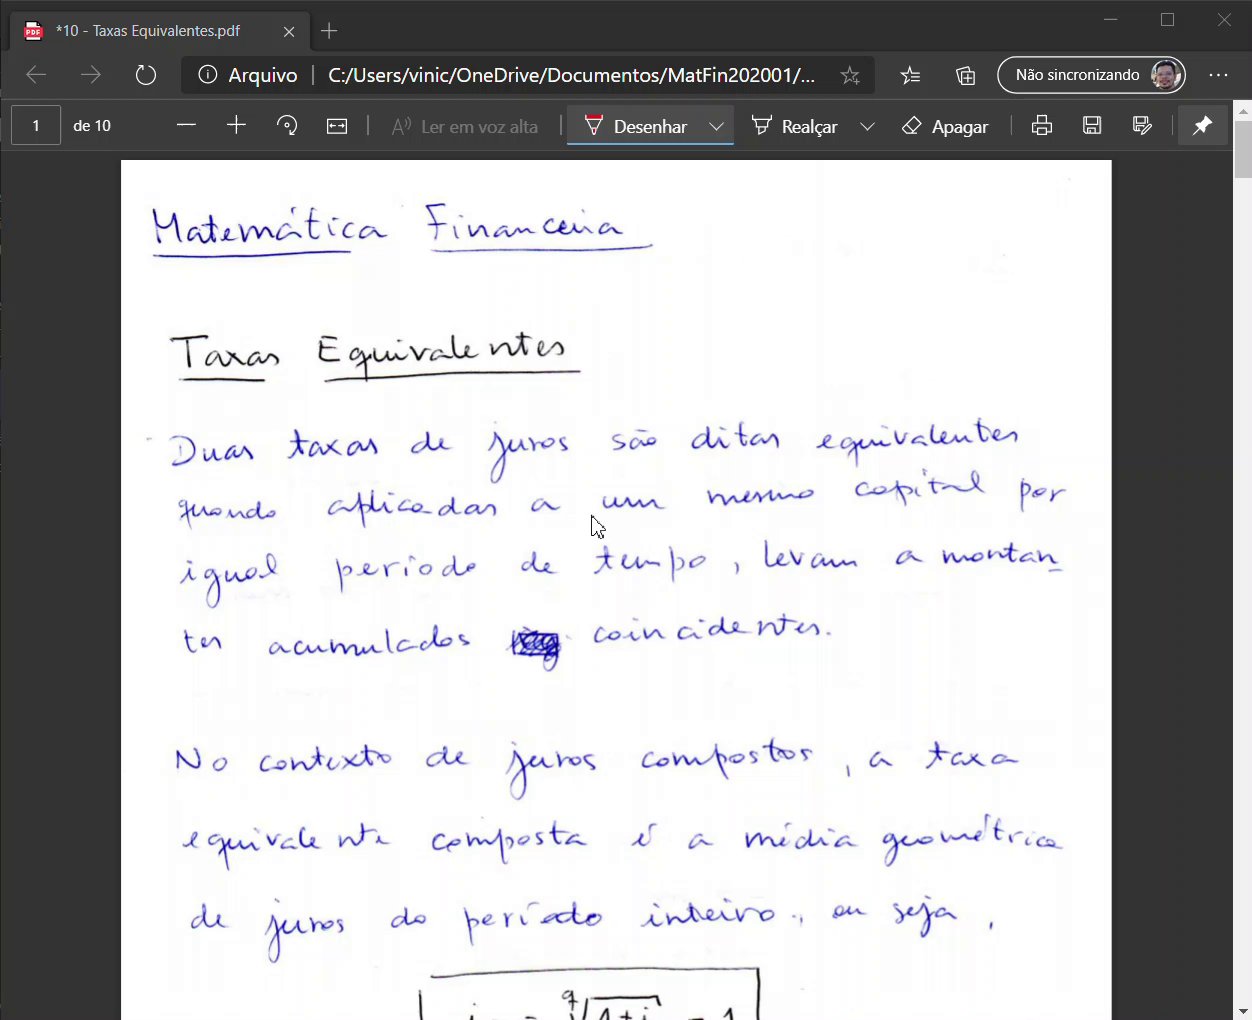 *10 - Taxas Equivalentes.pdf
Arquivo | C:/Users/vinic/OneDrive/Documentos/MatFin202001/...
Não sincronizando
1 de 10
Ler em voz alta
Desenhar
Realçar
Apagar
Matemática Financeira
Taxas Equivalentes
Duas taxas de juros são ditas equivalentes
quando aplicadas a um mesmo capital por
igual período de tempo, levam a montan
tes acumulados coincidentes.
No contexto de juros compostos, a taxa
equivalente composta é a média geométrica
de juros do período inteiro, ou seja,